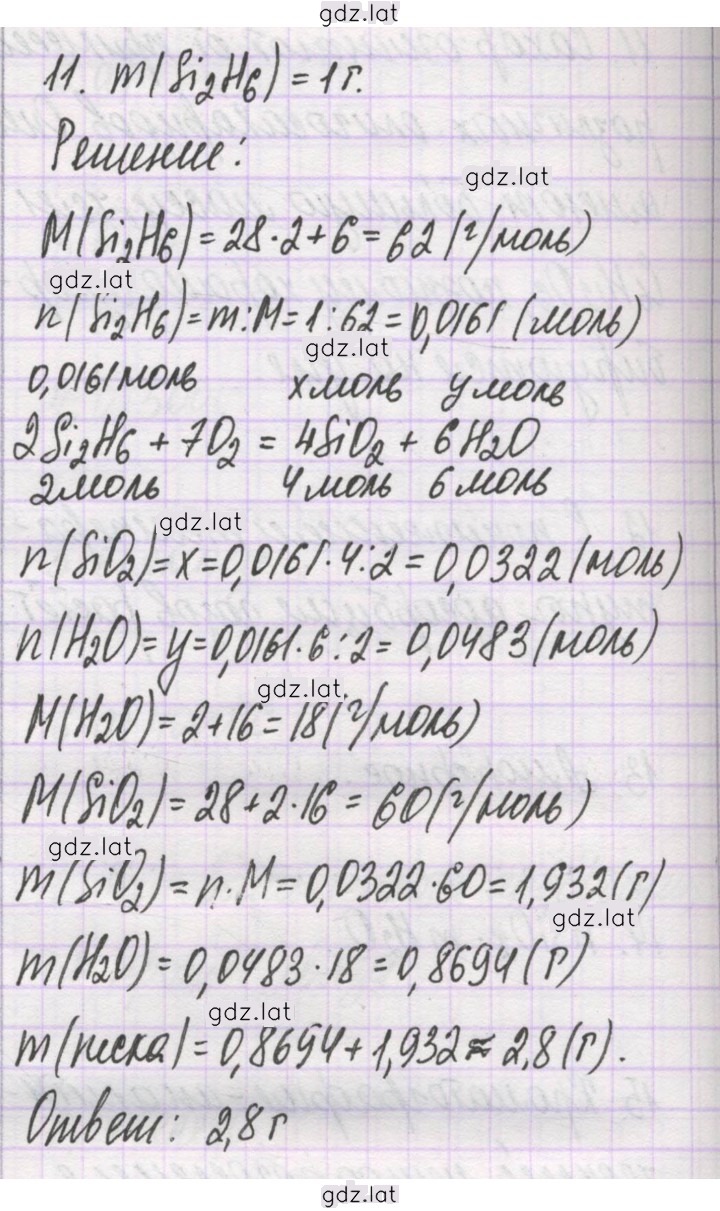 gdz.lat
11. m(Si₂H₆) = 1 г.
Решение:
gdz.lat
M(Si₂H₆) = 28·2+6 = 62 (г/моль)
gdz.lat
n(Si₂H₆) = m:M = 1:62 = 0,0161 (моль)
gdz.lat
0,0161 моль x моль y моль
2Si₂H₆ + 7O₂ = 4SiO₂ + 6H₂O
2 моль 4 моль 6 моль
gdz.lat
n(SiO₂) = x = 0,0161·4:2 = 0,0322 (моль)
n(H₂O) = y = 0,0161·6:2 = 0,0483 (моль)
gdz.lat
M(H₂O) = 2+16 = 18 (г/моль)
M(SiO₂) = 28+2·16 = 60 (г/моль)
gdz.lat
m(SiO₂) = n·M = 0,0322·60 = 1,932 (г)
gdz.lat
m(H₂O) = 0,0483·18 = 0,8694 (г)
gdz.lat
m(песка) = 0,8694+1,932 ≈ 2,8 (г).
Ответ: 2,8 г
gdz.lat